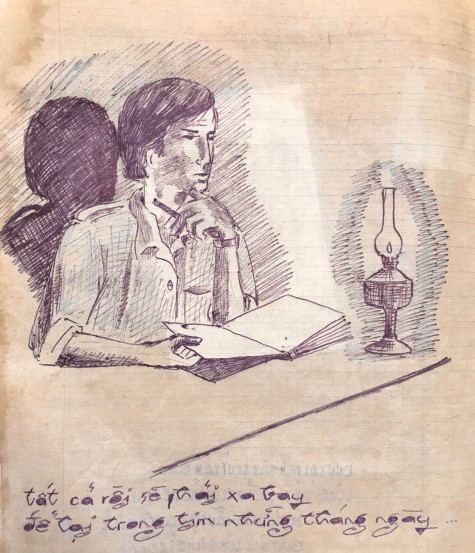 tất cả rồi sẽ phải xa bay
để lại trong tim những tháng ngày ...